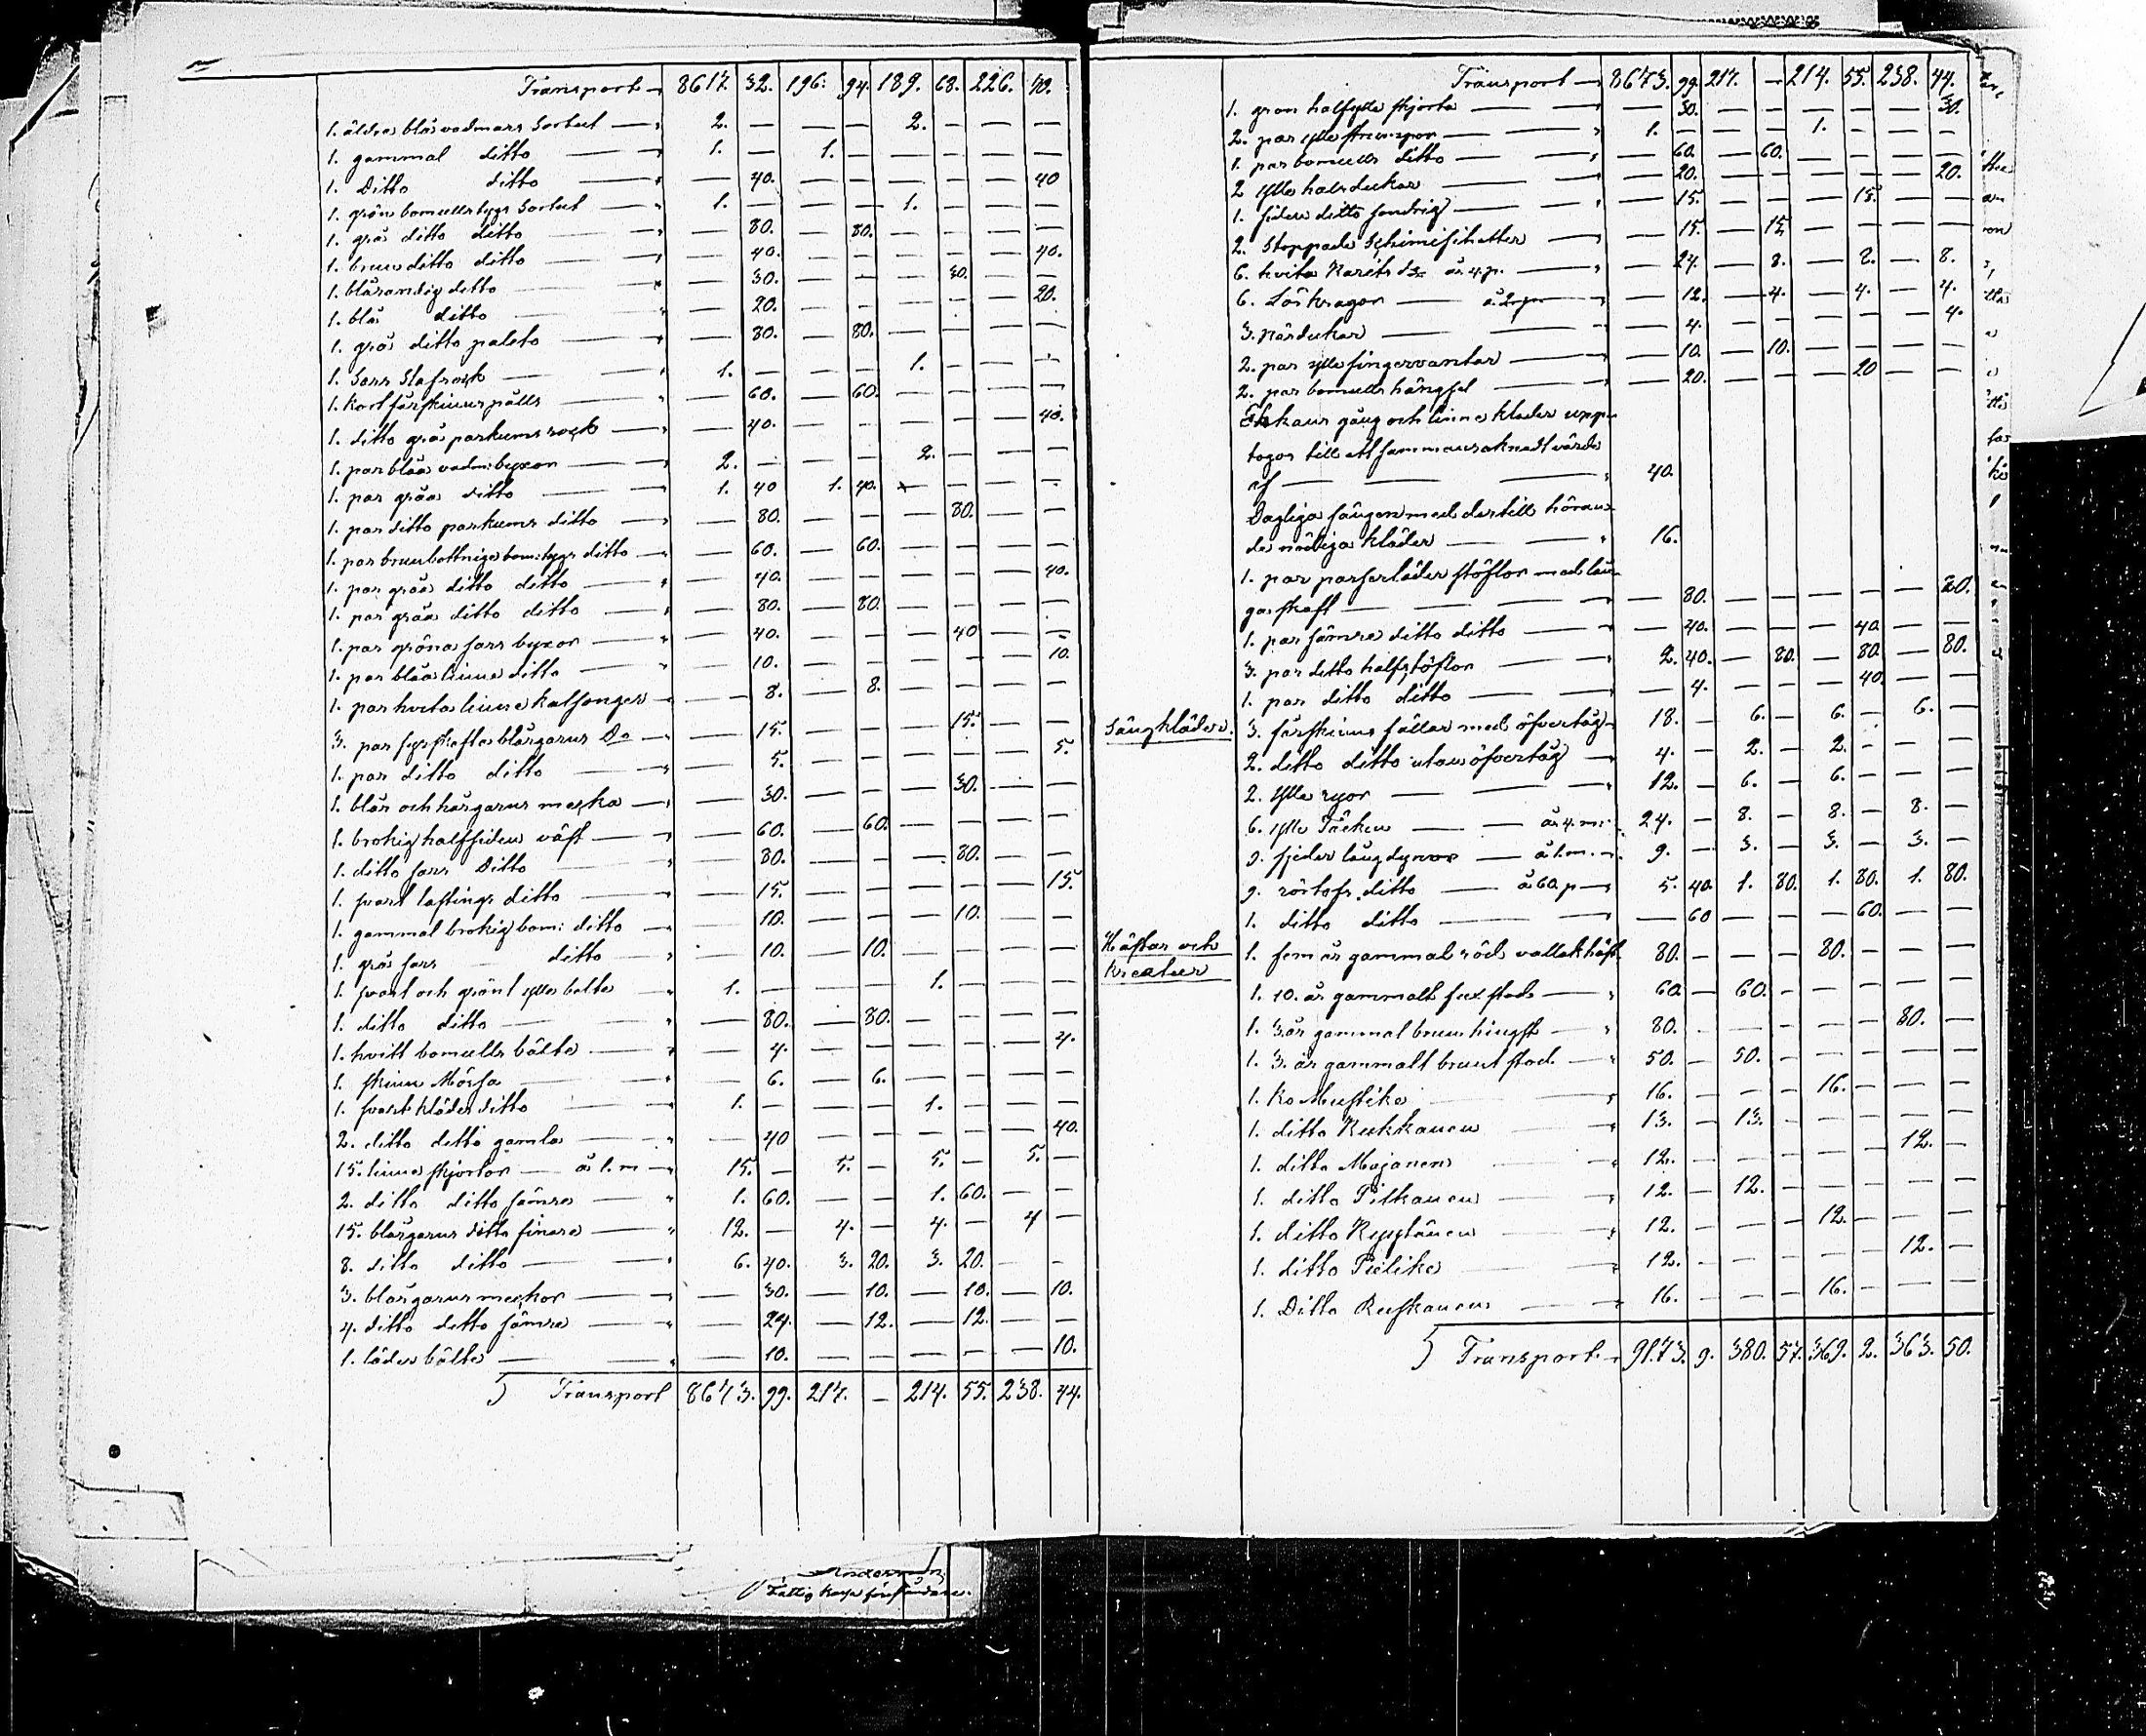 Transport 8617. 32. 196. 94. 189. 68. 226. 70.
1. äldre blå vadmars Sortut — 2. — — — 2. — — —
1. gammal ditto — 1. — 1. — — — — —
1. Ditto ditto — — 40. — — — — — 40
1. grön bomullstygs Sortut — 1. — — — 1. — — —
1. grå ditto ditto — — 80. — 80. — — — —
1. brun ditto ditto — — 40. — — — — — 40.
1. blårandig ditto — — 30. — — — 30. — —
1. blå ditto — — 20. — — — — — 20.
1. grå ditto paleto — — 80. — 80. — — — —
1. Sars Slafrock — 1. — — — 1. — — —
1. kort fårskinns pälls — — 60. — 60. — — — —
1. ditto grå parkums rock — — 40. — — — — — 40.
1. par blåa vadm: byxor — 2. — — — 2. — — —
1. par gråa ditto — 1. 40 1. 40. — — — —
1. par ditto parkums ditto — — 80. — — — 80. — —
1. par brunbottniga bom: tygs ditto — — 60. — 60. — — — —
1. par gråa ditto ditto — — 40. — — — — — 40.
1. par gråa ditto ditto — — 80. — 80. — — — —
1. par gröna sars byxor — — 40. — — — 40 — —
1. par blåa linne ditto — — 10. — — — — — 10.
1. par hvita linne kalsonger — — 8. — 8. — — — —
3. par fyrskafta blårgarns Do — — 15. — — — 15. — —
1. par ditto ditto — — 5. — — — — — 5.
1. blår och hårgarns mecka — — 30. — — — 30. — —
1. brokig halfsiden väst — — 60. — 60. — — — —
1. ditto sars Ditto — — 80. — — — 80. — —
1. svart lastings ditto — — 15. — — — — — 15.
1. gammal brokig bom: ditto — — 10. — — — 10. — —
1. grå sars ditto — — 10. — 10. — — — —
1. svart och grönt ylle bälte — 1. — — — 1. — — —
1. ditto ditto — — 80. — 80. — — — —
1. hvitt bomulls bälte — — 4. — — — — — 4.
1. skinn Mössa — — 6. — 6. — — — —
1. svart klädes ditto — 1. — — — 1. — — —
2. ditto ditto gamla — — 40 — — — — — 40.
15. linne skjortor — à 1. m — 15. — 5. — 5. — 5. —
2. ditto ditto sämre — 1. 60. — — 1. 60. — —
15. blårgarns ditto finare — 12. — 4. — 4. — 4 —
8. ditto ditto — 6. 40. 3. 20. 3. 20. — —
3. blårgarns meckor — — 30. — 10. — 10. — 10.
4. ditto ditto sämre — — 24. — 12. — 12. — —
1. läder bälte — — 10. — — — — — 10.
Transport 8673. 99. 217. — 214. 55. 238. 44.
Andersson
Fattig kasse föreståndare.
Transport — 8673. 99. 217. — 214. 55. 238. 44.
1. gron halfylle skjorta — — 30. — — — — — 30.
2. par ylle strumpor — 1. — — — 1. — — —
1. par bomulls ditto — — 60. — 60. — — — —
2 ylle halsdukar — — 20. — — — — — 20.
1. siden ditto sondrig — — 15. — — — 15. — —
2. Stoppade — — 15. — 15. — — — —
6. hvita à 4. p. — — 24. — 8. — 8. — 8.
6. Löskragor — à 2. p — — 12. — 4. — 4. — 4.
3. näsdukar — — 4. — — — — — 4.
2. par ylle fingervantar — — 10. — 10. — — — —
2. par bomulls hängsel — — 20. — — — 20 — —
Enkans gång och linne kläder upp-
togos till ett sammansräknadt värde
af — 40.
Dagliga sängen med dertill höran-
de nödiga kläder — 16.
1. par parserläder stöflor med lån-
ga skaft — — 80. — — — — — 80.
1. par sämre ditto ditto — — 40. — — — 40. — —
3. par ditto halfstöflor — 2. 40. — 80. — 80. — 80.
1. par ditto ditto — — 4. — — — 40. — —
Sängkläder. 3. fårskinns fällar med öfvertåg — 18. — 6. — 6. — 6. —
2. ditto ditto utan öfvertåg — 4. — 2. — 2. — — —
2. ylle ryor — 12. — 6. — 6. — — —
6. ylle Täcken — à 4. m: 24. — 8. — 8. — 8. —
9. fjeder långdynor — à 1. m. — 9. — 3. — 3. — 3. —
9. rörtofs ditto — à 60. p — 5. 40. 1. 80. 1. 80. 1. 80.
1. ditto ditto — — 60 — — — 60. — —
Hästar och
Kreatur
1. fem år gammal röd vallak häst. 80. — — — 80. — — —
1. 10. år gammalt fux sto — 60 — 60. — — — — —
1. 3 år gammal brun hingst — 80. — — — — — 80. —
1. 3. år gammalt brunt sto — 50. — 50. — — — — —
1. Ko Mustike — 16. — — — 16. — — —
1. ditto Kukkanen — 13. — 13. — — — — —
1. ditto Majanen — 12. — — — — — 12. —
1. ditto Pitkanen — 12. — 12. — — — — —
1. ditto — 12. — — — 12. — — —
1. ditto — 12. — — — — — 12. —
1. Ditto Ruskanen — 16. — — — 16. — — —
Transport. — 9173. 9. 380. 57. 369. 2. 363. 50.